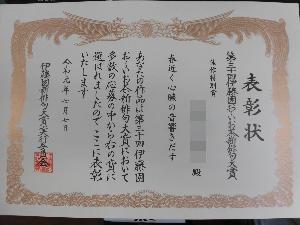 表彰状
第三十回伊藤園お〜いお茶新俳句大賞
佳作特別賞
春近く心臓の音響きだす
殿
あなたの作品は第三十回伊藤園
お〜いお茶新俳句大賞において
多数の応募の中から右の賞に
選ばれましたので、ここに表彰
いたします
令和元年七月七日
伊藤園新俳句大賞実行委員会